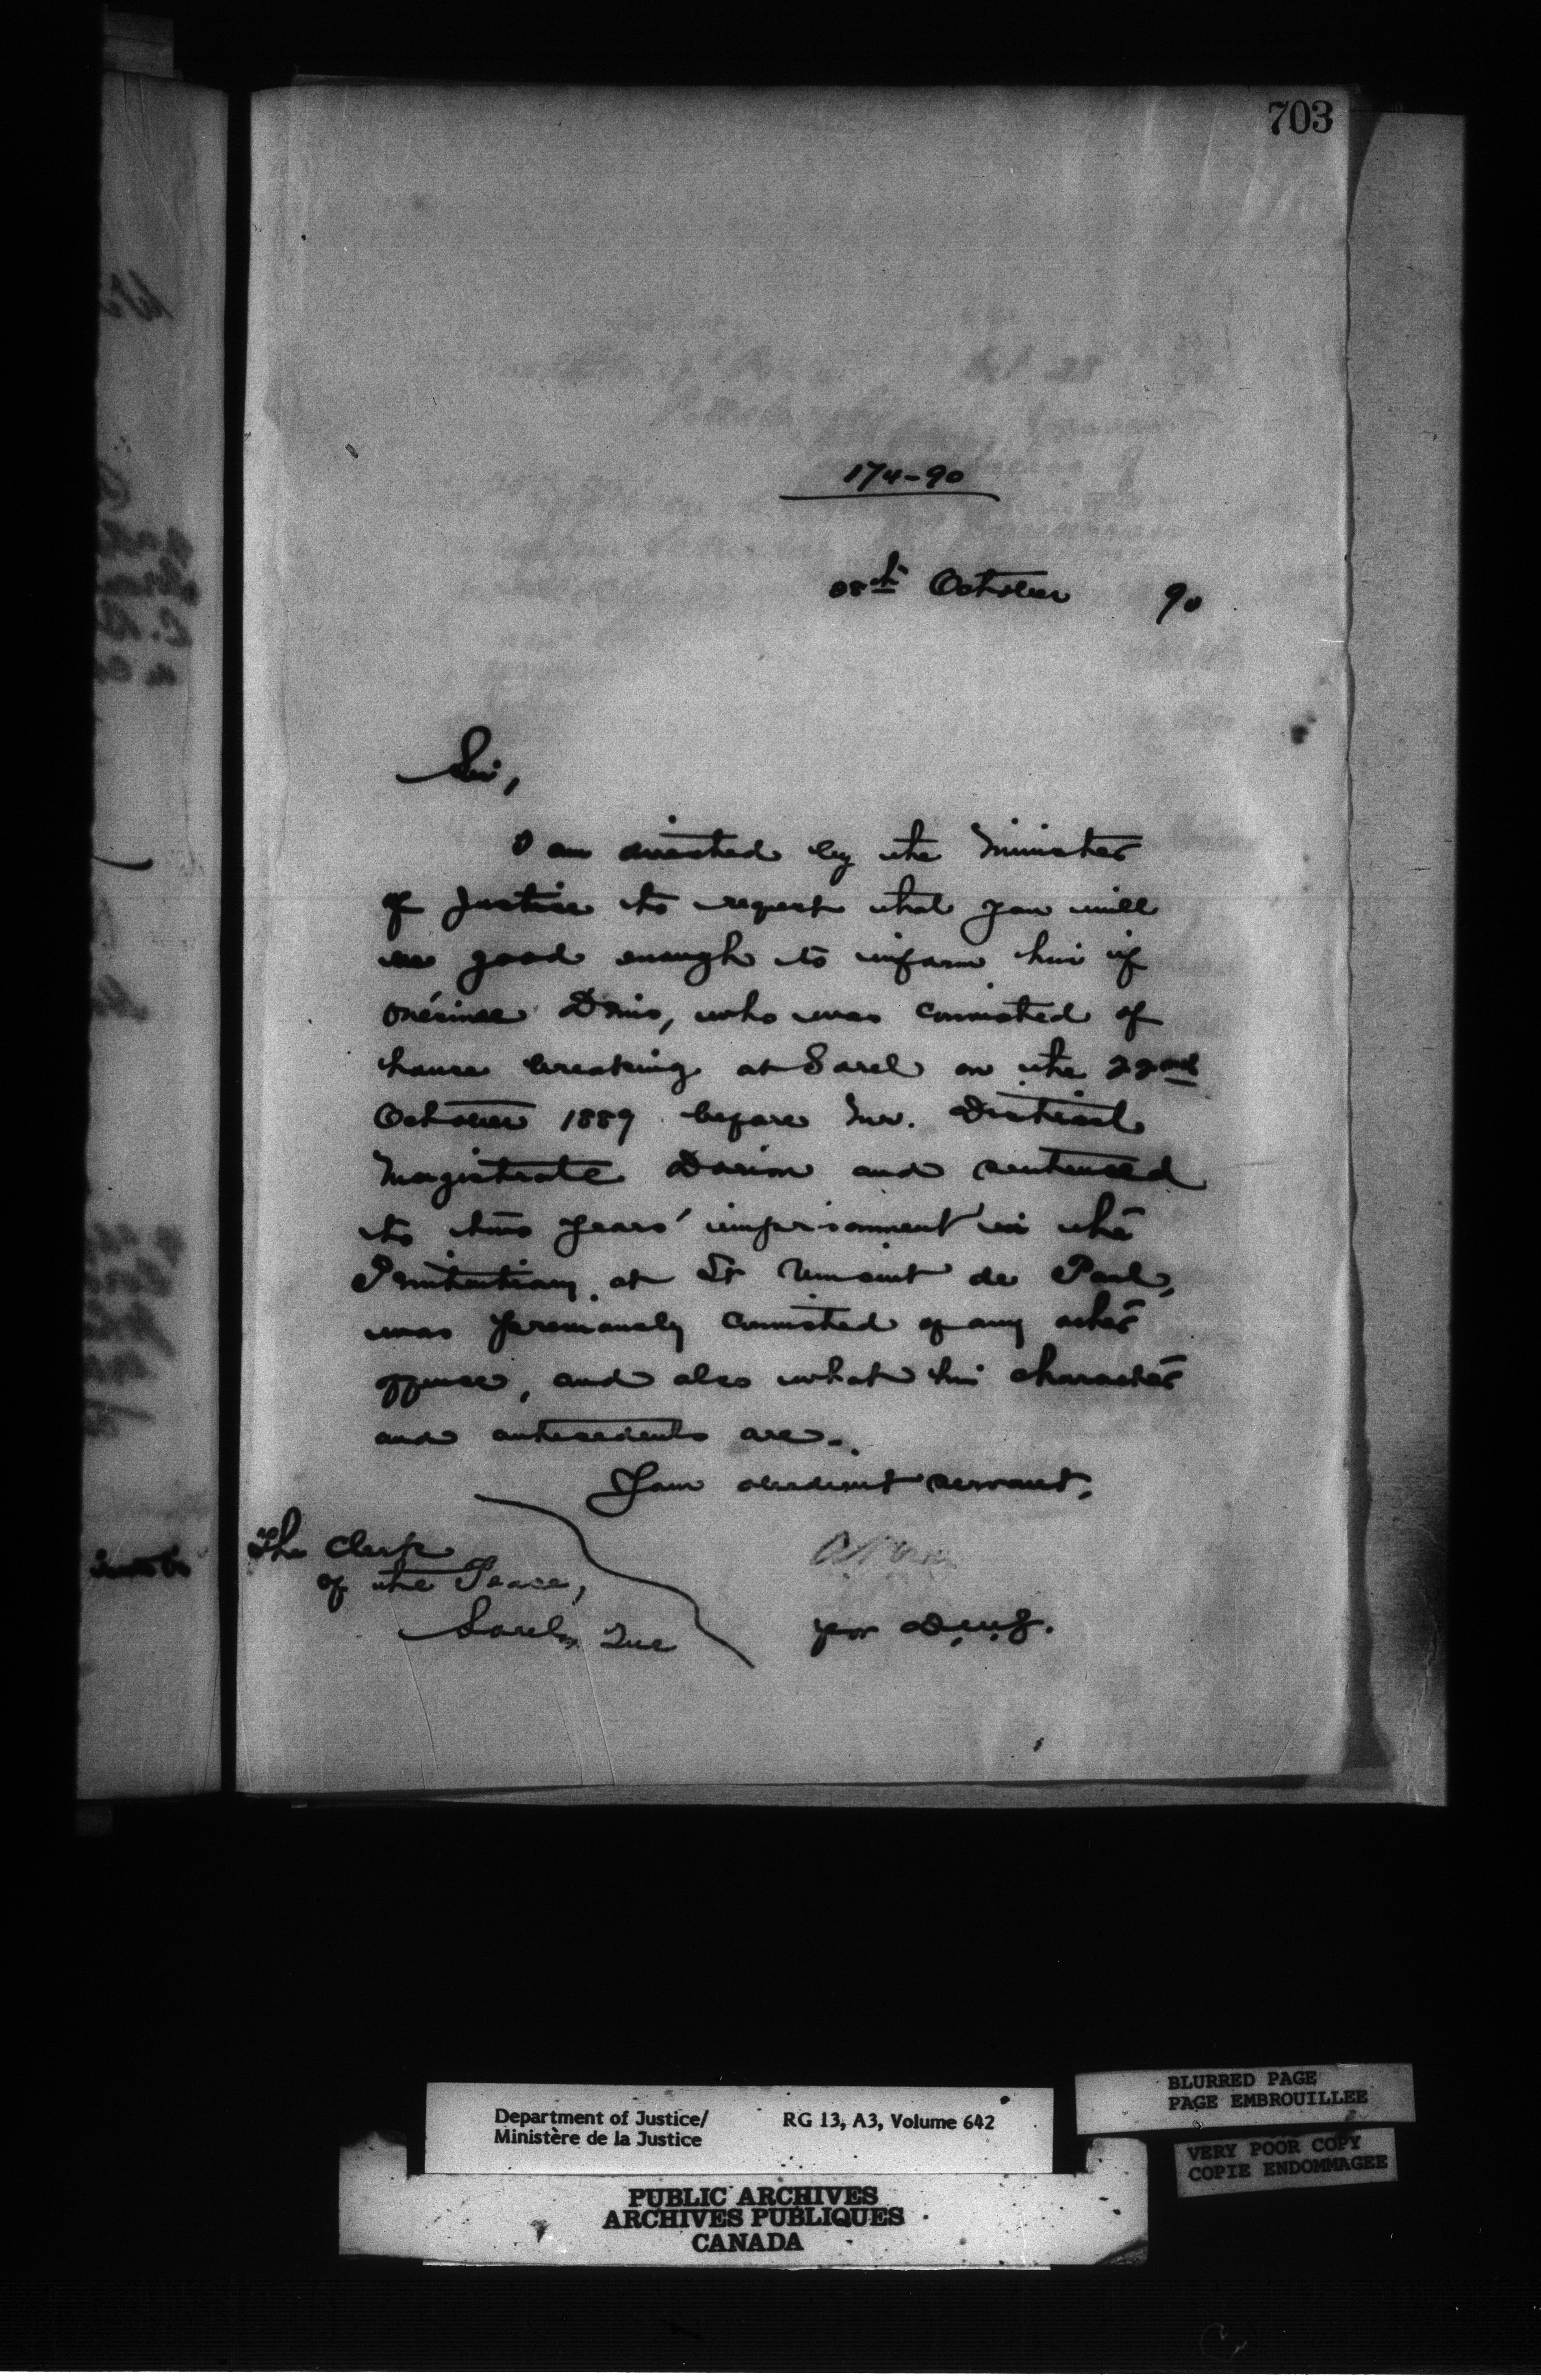 703
174-90
28th October 90
Sir,
I am directed by the Minister
of Justice to request that you will
be good enough to inform him if
Onésime Denis, who was convicted of
house breaking at Sorel on the 22nd
October 1889 before Mr. District
Magistrate Dorion and sentenced
to two years' imprisonment in the
Penitentiary at St Vincent de Paul,
was previously convicted of any other
offence, and also what his character
and antecedents are.
Your obedient servant,
The Clerk
of the Peace,
Sorel, Que
for D.M.J.
Department of Justice/
Ministère de la Justice
RG 13, A3, Volume 642
BLURRED PAGE
PAGE EMBROUILLEE
VERY POOR COPY
COPIE ENDOMMAGEE
PUBLIC ARCHIVES
ARCHIVES PUBLIQUES
CANADA